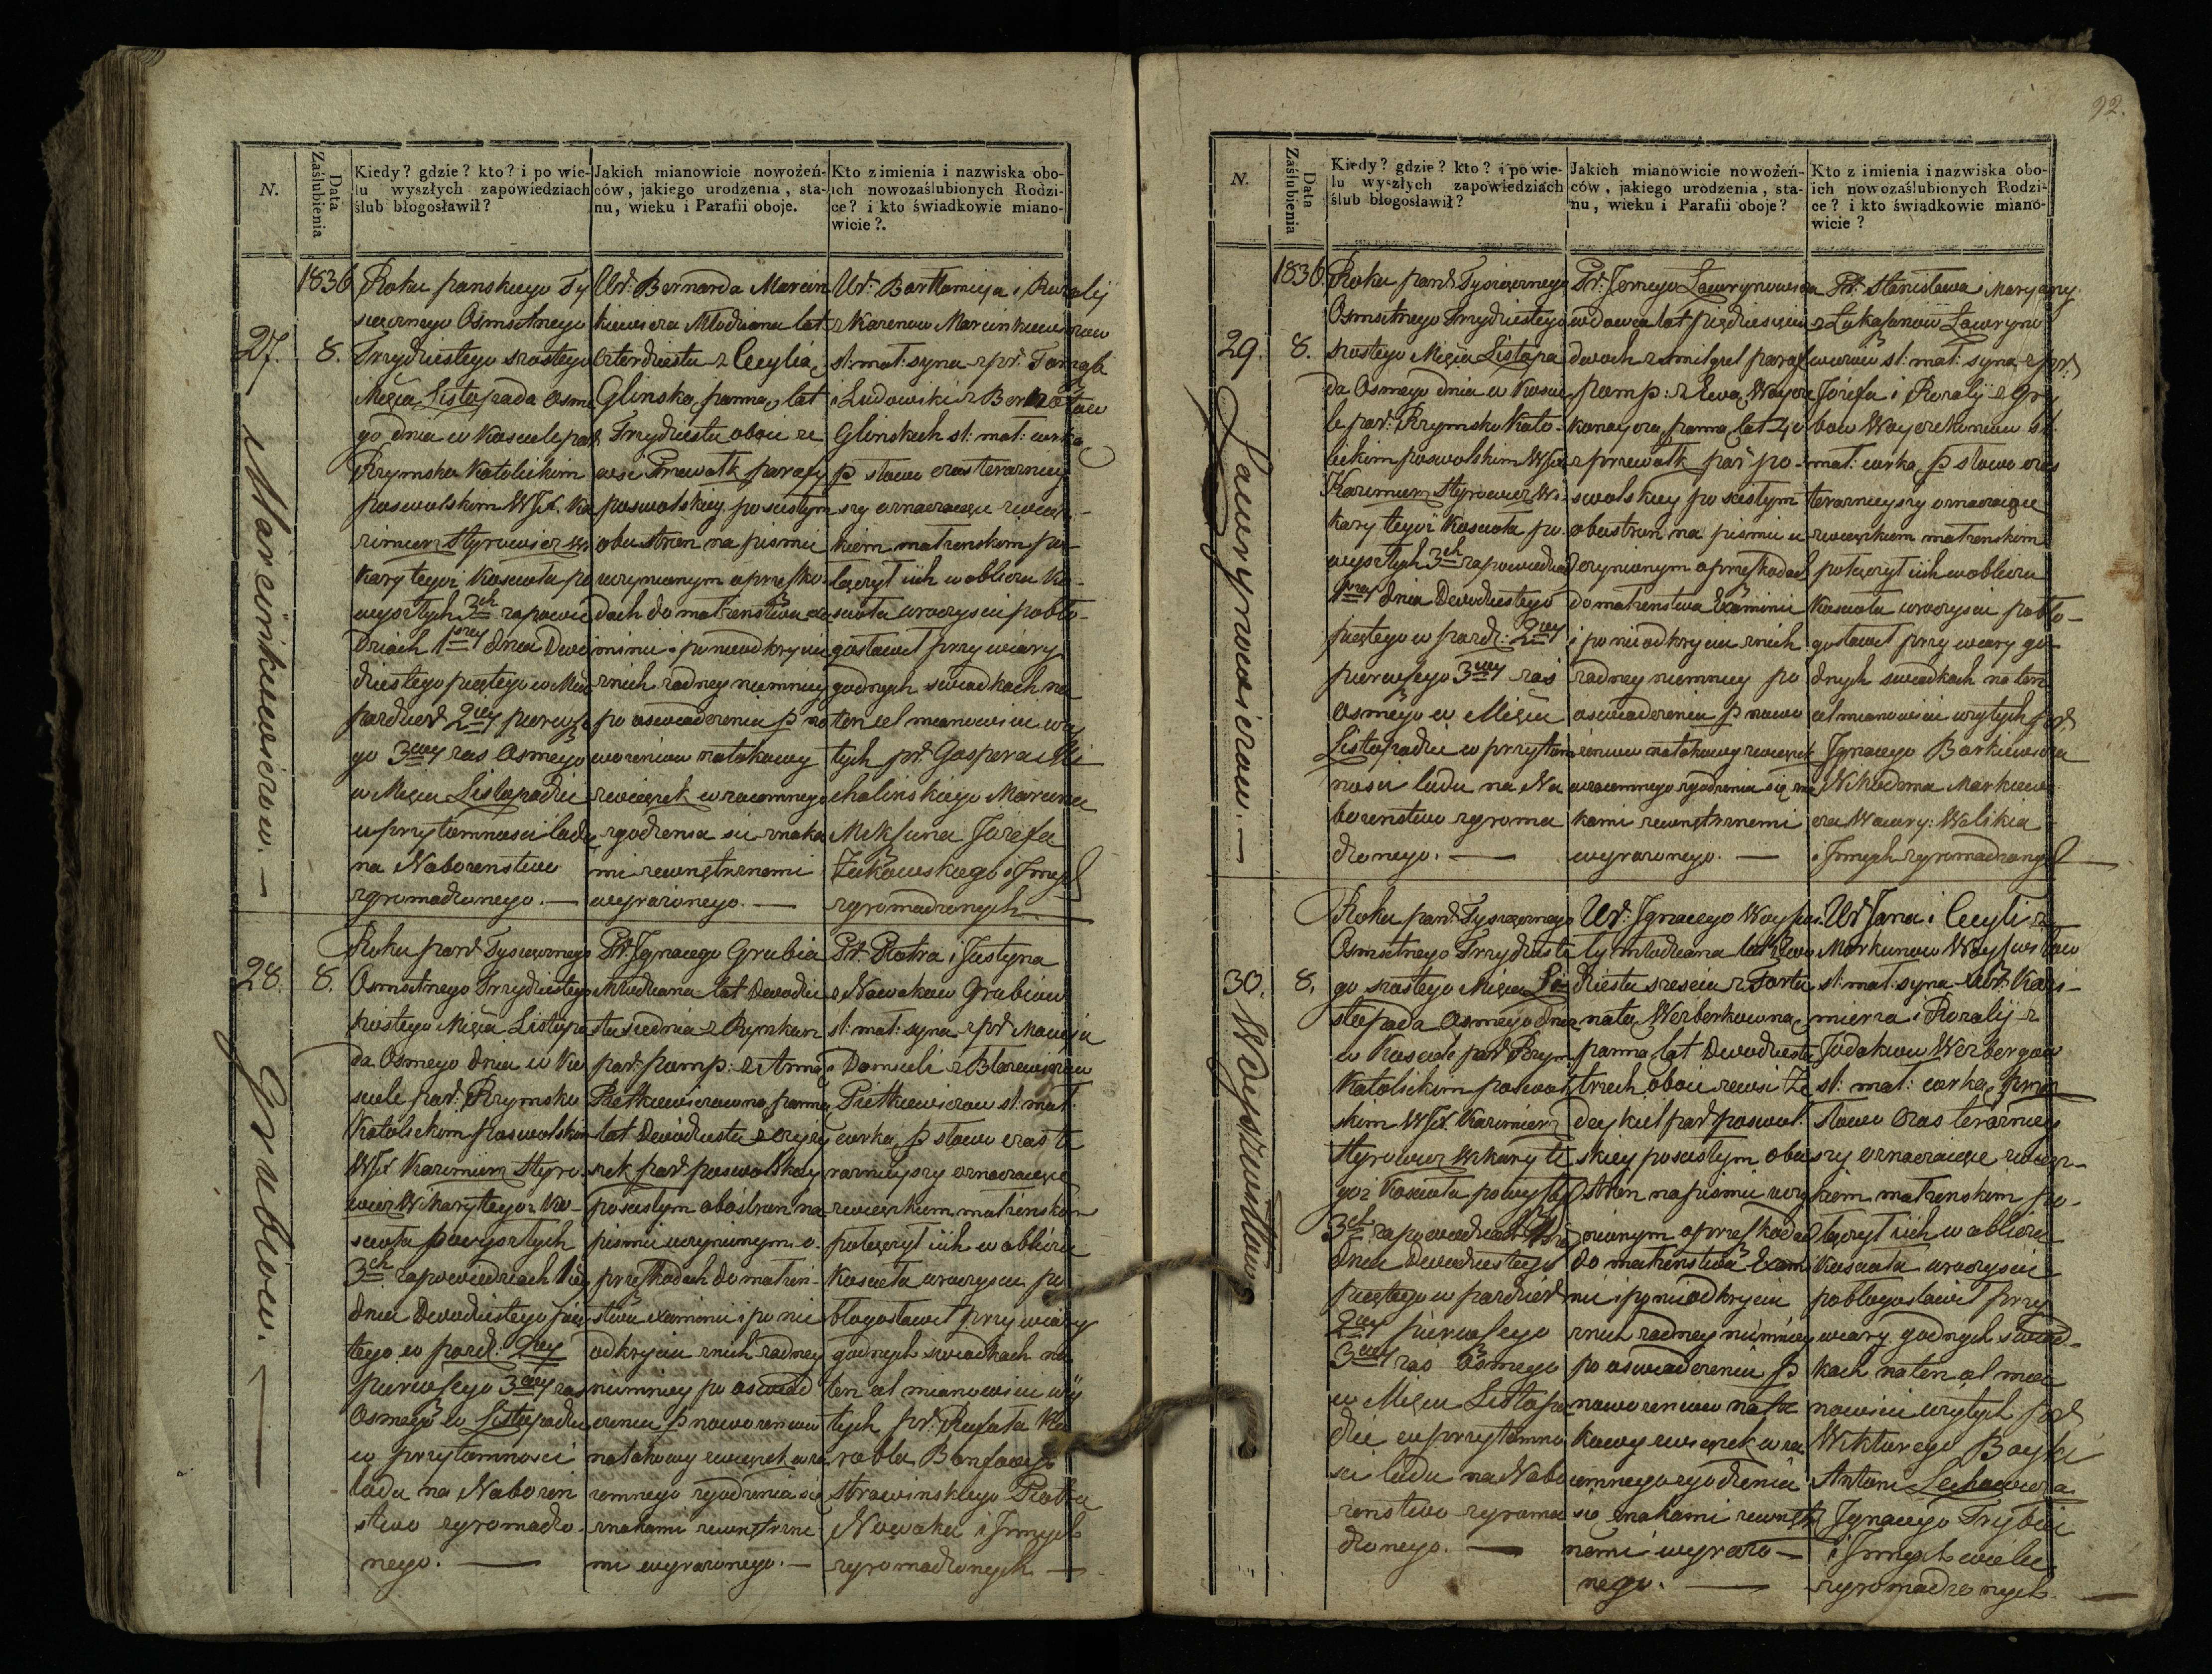 N.
Data Zaślubienia
Kiedy? gdzie? kto? i po wie-
lu wyszłych zapowiedziach
ślub błogosławił?
Jakich mianowicie nowożeń-
ców, jakiego urodzenia, sta-
nu, wieku i Parafii oboje.
Kto z imienia i nazwiska obo-
ich nowozaślubionych Rodzi-
ce? i kto świadkowie miano-
wicie?.
1836
27.
Marcinkiewiczow. —
8.
Roku panskiego Ty
siącznego Osmsetnego
Trzydziestego szostego
Mięca Listopada osme
go dnia w Kosciele par
Rzymsko Katolickim
poswolskim WJX. Ka
zimierz Styrowicz Wi
kary tegoż Koscioła po
wyszłych 3ch zapowie
dziach 1szey dnia Dwu
dziestego piątego w Mcu
pazdzier 2iey pierwsze
go 3ciey zas osmego
w Mięcu Listopadzie
w przytomnosci ludu
na Nabozenstwo
zgromadzonego. —
Ur: Bernarda Marcin
kiewicza Młodziana lat
czterdziestu z Cecylią
Glinską panną lat
Trzydziestu oboje ze
wsi Prewałk parafy
poswolskiey po scisłym
obustron na pismie
uczynionym o przeszko
dach do małzenstwa exa
minie i po nieodkryciu
z nich zadney niemniey
po oswiadczeniu p no
wozencow na takowy
związek wzaiemnego
zgodzenia się znaka
mi zewnętrznemi
wyrazonego. —
Ur: Bartłomieja i Rozalij
z Karenow Marcinkiewiczow
sl: mał: syna z pr.
i Ludowiki z
Glinskich sl: mał: corką
p słowo oras terazniey
szy oznaczaiące związ-
kiem małzenskim po-
łączył ich w obliczu Ko-
scioła uroczyscie pobło-
gosławił przy wiary
godnych swiadkach na
ten cel mianowicie wzię
tych pr: Gaspera Mi
chalinskiego Marcina
Józefa
Zukowskiego i Innych
zgromadzonych
28.
Grubiow. —
8.
Roku pań Tysiącznego
Osmsetnego Trzydziestego
szostego Mięca Listopa
da Osmego dnia w Ko
sciele par: Rzymsko
Katolickim poswolskim
WJX Kazimierz Styro-
wicz Wikary tegoż Ko-
scioła po wyszłych
3ch zapowiedziach
dnia Dwudziestego pią
tego w pazd: 2iey
pierwszego 3ciey zas
Osmego w Listopadzie
w przytomnosci
ludu na Nabozen
stwo zgromadzo-
nego. —
Pr. Ignacego Grubia
Młodziana lat Dwudzie
stu siedmia z Rynkun
par: pomp: z Anną
Pietkiewiczowną panną
lat Dwudziestu z
par poswolskiey
po scisłym obostron na
pismie uczynionym o
przeszkodach do małżen-
stwa examinie i po nie
odkryciu z nich zadney
niemniey po oswiad
czeniu p nowozencow
na takowy związek wza
iemnego zgodzenia się
znakami zewnętrzne
mi wyrazonego. —
Pr. Piotra i Justyna
z Nowakow Grubiow
sl: mał: syna z pr Macieja
i Domiceli z
Pietkiewiczow sl: mał:
corką p słowo oras te
raznieyszy oznaczaiące
związkiem małżenskim
połączył ich w obliczu
Koscioła uroczyscie po
błogosławił przy wiary
godnych swiadkach na
ten cel mianowicie wzię
tych pr: Rafała
Strawinskiego Piotra
Nowaka i Innych
zgromadzonych —
92.
N.
Data Zaślubienia
Kiedy? gdzie? kto? i po wie-
lu wyszłych zapowiedziach
ślub błogosławił?
Jakich mianowicie nowożeń-
ców, jakiego urodzenia, sta-
nu, wieku i Parafii oboje?
Kto z imienia i nazwiska obo-
ich nowozaślubionych Rodzi-
ce? i kto świadkowie miano-
wicie?
1836
29.
Ławrynowiczow. —
8.
Roku pań Tysiącznego
Osmsetnego Trzydziestego
szostego Mięca Listopa
da Osmego dnia w Koscie
le par: Rzymsko Kato-
lickim poswolskim WJX
Kazimierz Styrowicz Wi-
kary tegoż Koscioła po
wyszłych 3ch zapowiedziach
1szey dnia Dwudziestego
piątego w pazd: 2iey
pierwszego 3ciey zas
osmego w Mięcu
Listopadzie w przytom
nosci ludu na Na
bozenstwo zgroma
dzonego. —
Pr. Jerzego Ławrynowicza
wdowca lat pięćdziesięciu
dwoch z paraf
pomp: z Ewą
panną lat 40
z prewałk par po-
swolskiey po scisłym
obustron na pismie u
czynionym o przeszkodach
do małzenstwa Examinie
i po nieodkryciu z nich
zadney niemniey po
oswiadczeniu p nowo
żencow na takowy związek
wzaiemnego zgodzenia się zna
kami zewnętrznemi
wyrazonego. —
Pr. Stanisława Maryanny
z Łukaszunow Ławryno
wiczow sl: mał: syna z pr:
Józefa i Rozalij z Gry
bow sl.
mał: corką p słowo oras
teraznieyszy oznaczaiące
związkiem małzenskim
połączył ich w obliczu
Koscioła uroczyscie pobło-
gosławił przy wiary go-
dnych swiadkach na ten
cel mianowicie wziętych pr
Ignacego Borkiewicza
Nikodema Markiewi
cza Wawrz:
i Innych zgromadzonych —
30.
Woyszwiłłow
8.
Roku pań Tysiącznego
Osmsetnego Trzydzieste
go szostego Mięca Li-
stopada Osmego dnia
w Kosciele par Rzym
Katolickim poswol
skim WJX Kazimierz
Styrowicz Wikary te
goż Koscioła po wyszłych
3ch zapowiedziach
dnia Dwudziestego
piątego w pazdzier
2iey pierwszego
3ciey zas Osmego
w Mięcu Listopa
dzie w przytomno
sci ludu na Nabo
zenstwo zgroma
dzonego. —
Ur: Ignacego
młodziana lat Dwu
dziestu szesciu z Fortu
natą Werberkowną
panną lat Dwudziestu
trzech oboie ze wsi
par poswol.
skiey po scisłym obu
stron na pismie uczy
nionym o przeszkodach
do małżenstwa Exami
nie i po nieodkryciu
z nich zadney niemniey
po oswiadczeniu p
nowozencow na ta
kowy związek wza
iemnego zgodzenia
się znakami zewnętrz
nemi wyrazo—
nego. —
Ur Jana i Cecylii z
Markunow
sl: mał: syna z Ur: Kazi-
mierza i Rozalij z
Werbergow
sl: mał: corką przez
słowo oras teraznieÿ
szy oznaczaiące związ-
kiem małzenskim po-
łączył ich w obliczu
Koscioła uroczyscie
pobłogosławił przy
wiary godnych swiad-
kach na ten cel mia
nowicie wziętych pr
Wiktorego
Antoni
Ignacego
i Innych wielu
zgromadzonych —